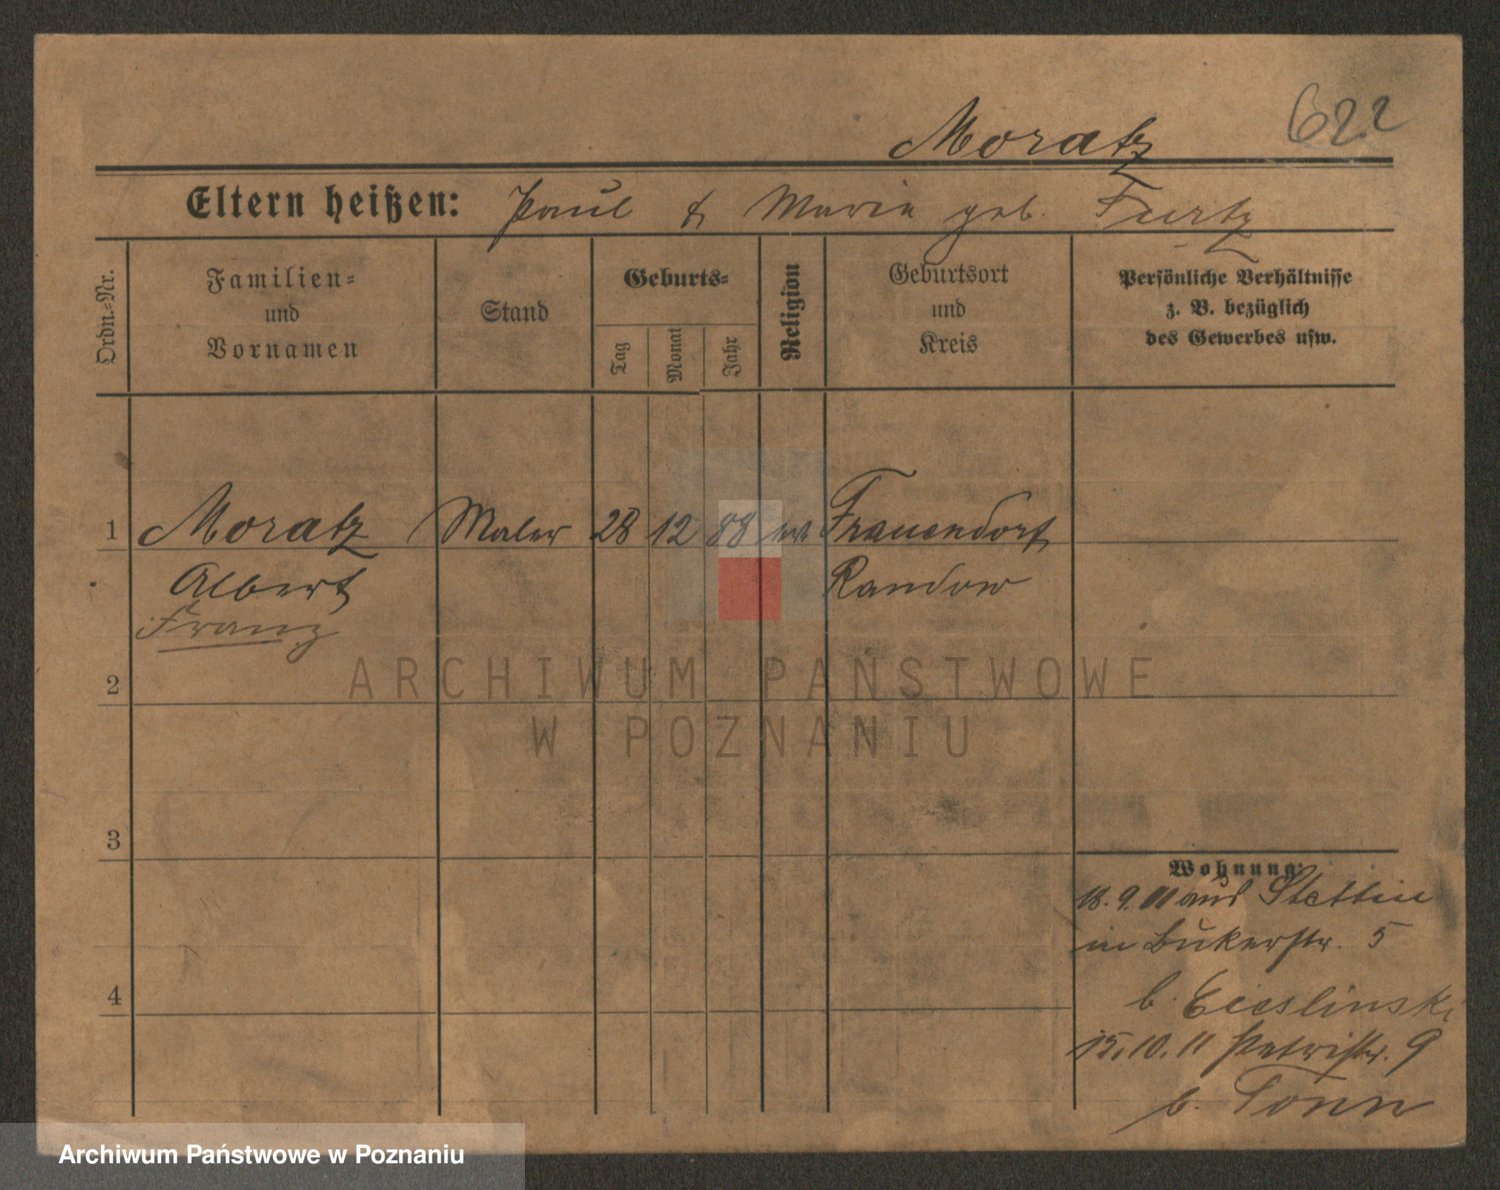 622
Moratz
Eltern heißen: Paul & Maria geb. Furtz
Ordn.-Nr.
Familien-
und
Vornamen
Stand
Geburts-
Tag
Monat
Jahr
Religion
Geburtsort
und
Kreis
Persönliche Verhältnisse
z. B. bezüglich
des Gewerbes usw.
1 Moratz Maler 28 12 88 Frauendorf
Albert Randow
Franz
2
ARCHIWUM PAŃSTWOWE
W POZNANIU
3
Wohnung:
18.9.11 aus Stettin
in Bukerstr. 5
4
b. Cieslinski
15.10.11 Petristr. 9
b. Tonn
Archiwum Państwowe w Poznaniu